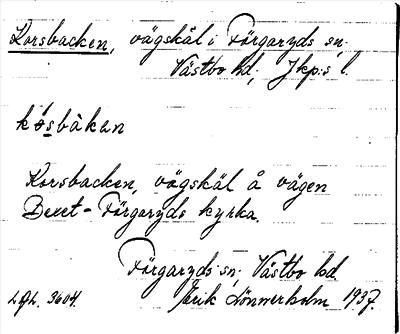 Korsbacken, vägskäl i Färgaryds sn,
Västbo hd, Jkp:s l.
kósbàkan
Korsbacken, vägskäl å vägen
Bexet - Färgaryds kyrka.
Färgaryds sn, Västbo hd
LGL. 3604. Erik Lönnerholm 1937.